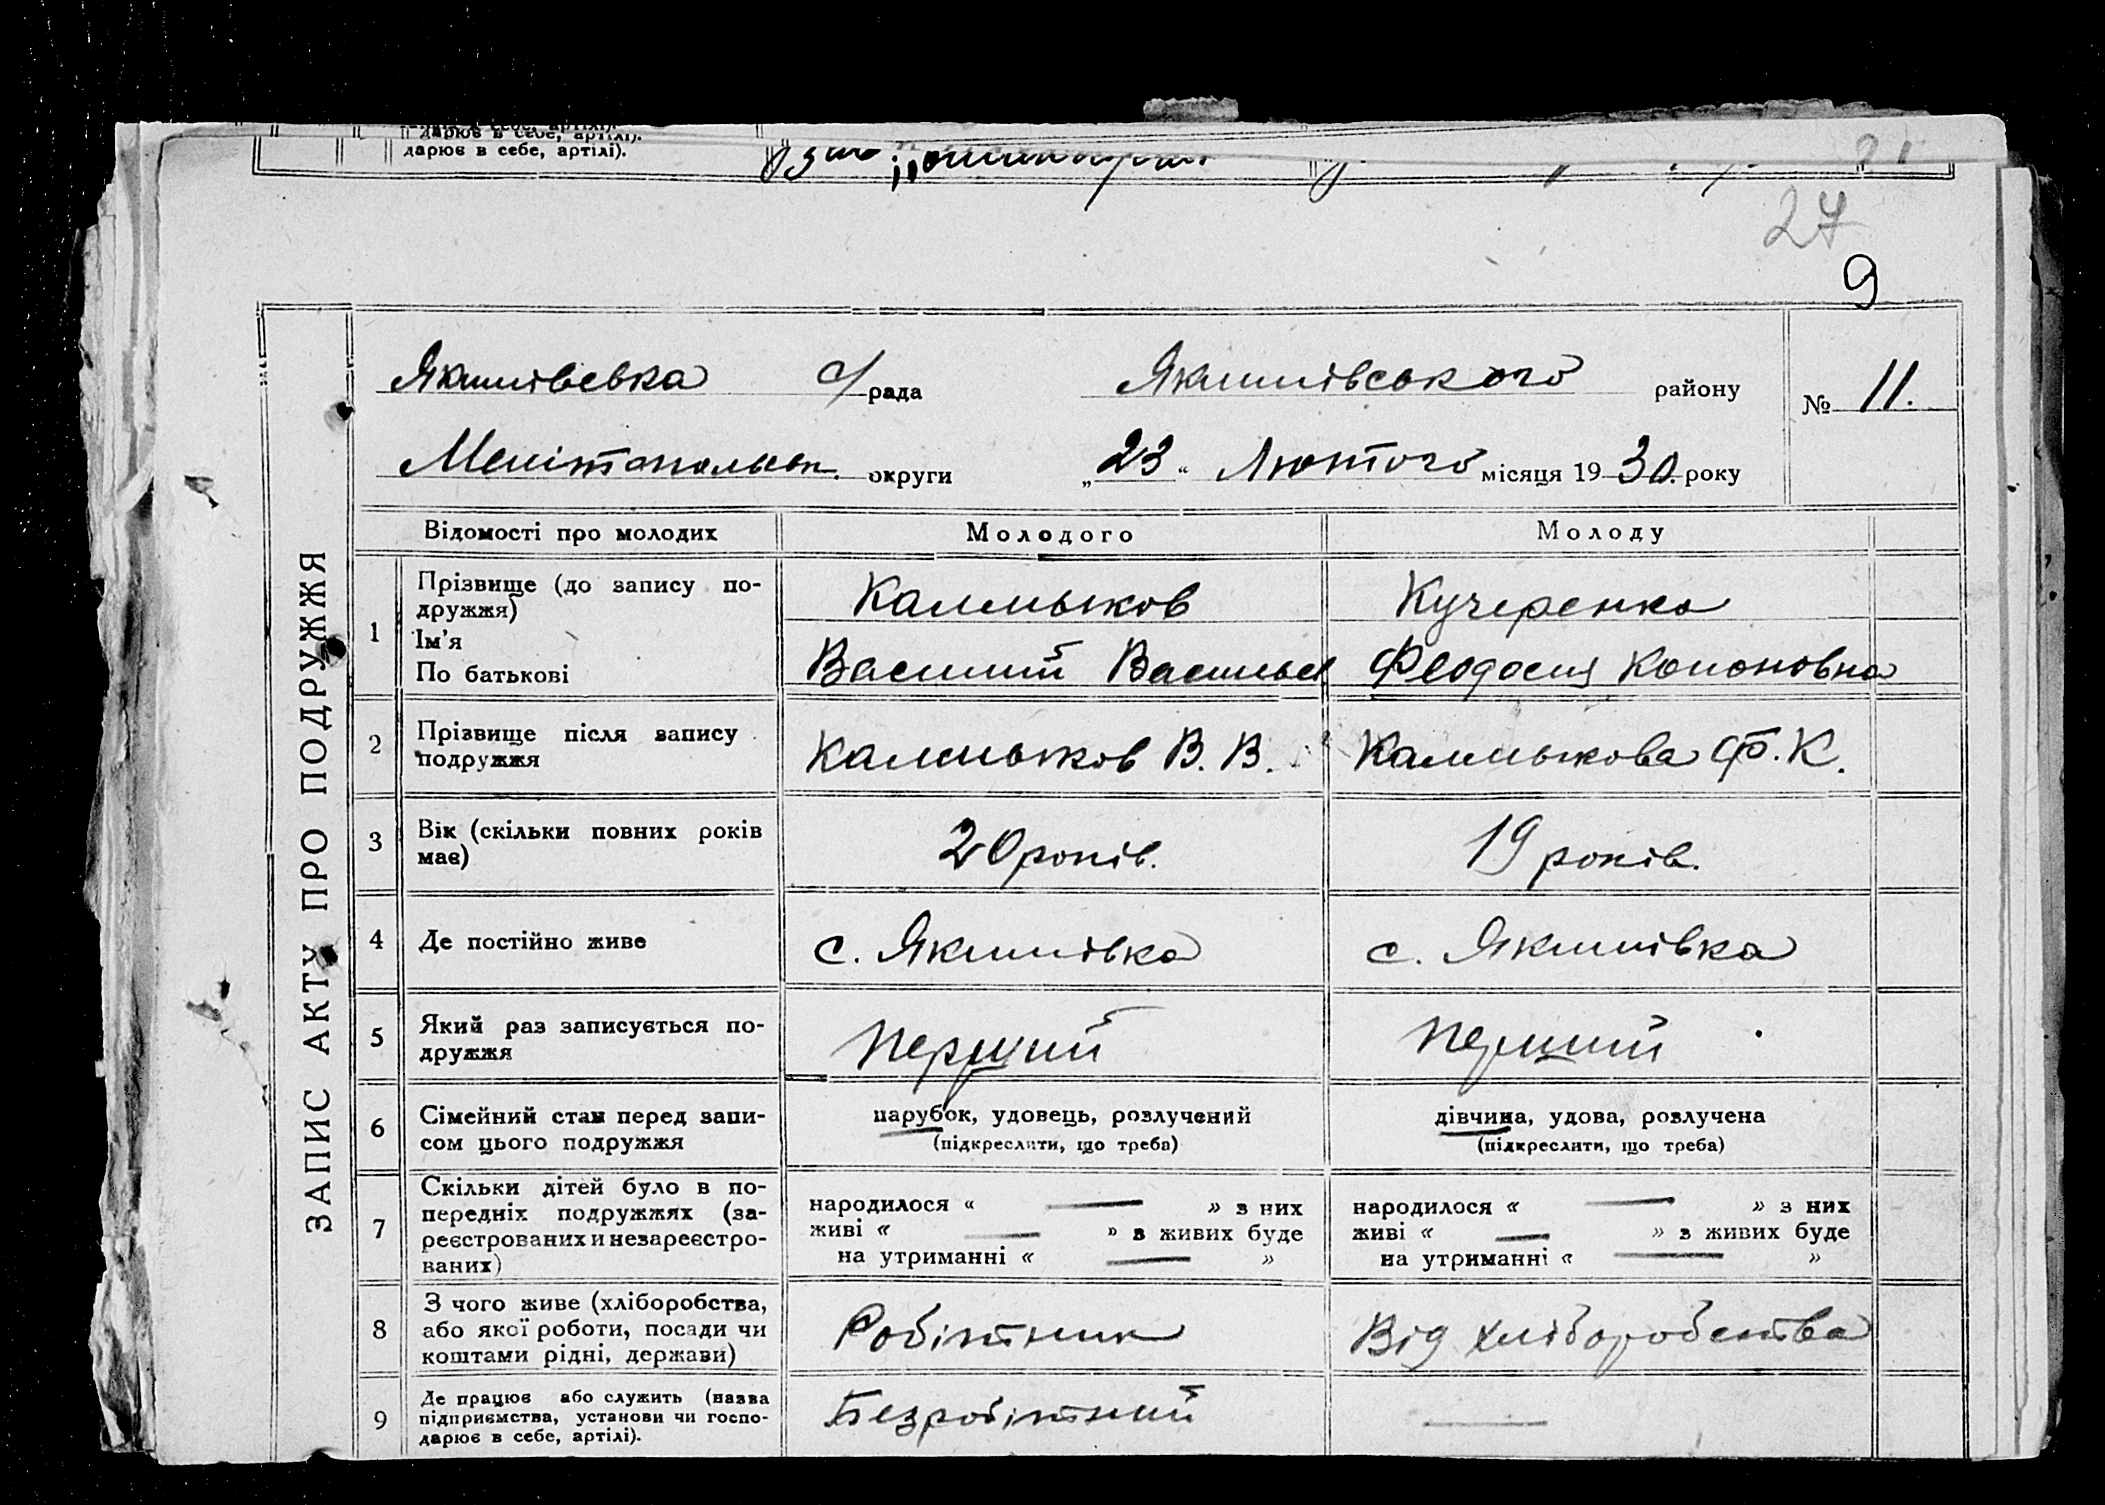 дарює в себе, артілі).
дарює в себе, артілі).
27
9
ЗАПИС АКТУ ПРО ПОДРУЖЖЯ
Якимівська с/рада Якимівського району № 11.
Мелітопольськ. округи „23“ Лютого місяця 1930 року
Відомості про молодих Молодого Молоду
1 Прізвище (до запису по-
дружжя) Калмыков Кучеренко
Ім'я
По батькові Василий Васильев. Феодосия Кононовна
2 Прізвище після запису
подружжя Калмыков В. В. Калмыкова Ф. К.
3 Вік (скільки повних років
має) 20 років. 19 років.
4 Де постійно живе с. Якимівка с. Якимівка
5 Який раз записується по-
дружжя перший перший
6 Сімейний стан перед запи-
сом цього подружжя
парубок, удовець, розлучений
(підкреслити, що треба)
дівчина, удова, розлучена
(підкреслити, що треба)
7 Скільки дітей було в по-
передніх подружжях (за-
реєстрованих и незареєстро-
ваних)
народилося « — » з них
живі « — » з живих буде
на утриманні « — »
народилося « — » з них
живі « — » з живих буде
на утриманні « — »
8 З чого живе (хліборобства,
або якої роботи, посади чи
коштами рідні, держави)
Робітник Від хліборобства
9 Де працює або служить (назва
підприємства, установи чи госпо-
дарює в себе, артілі).
Безробітний —